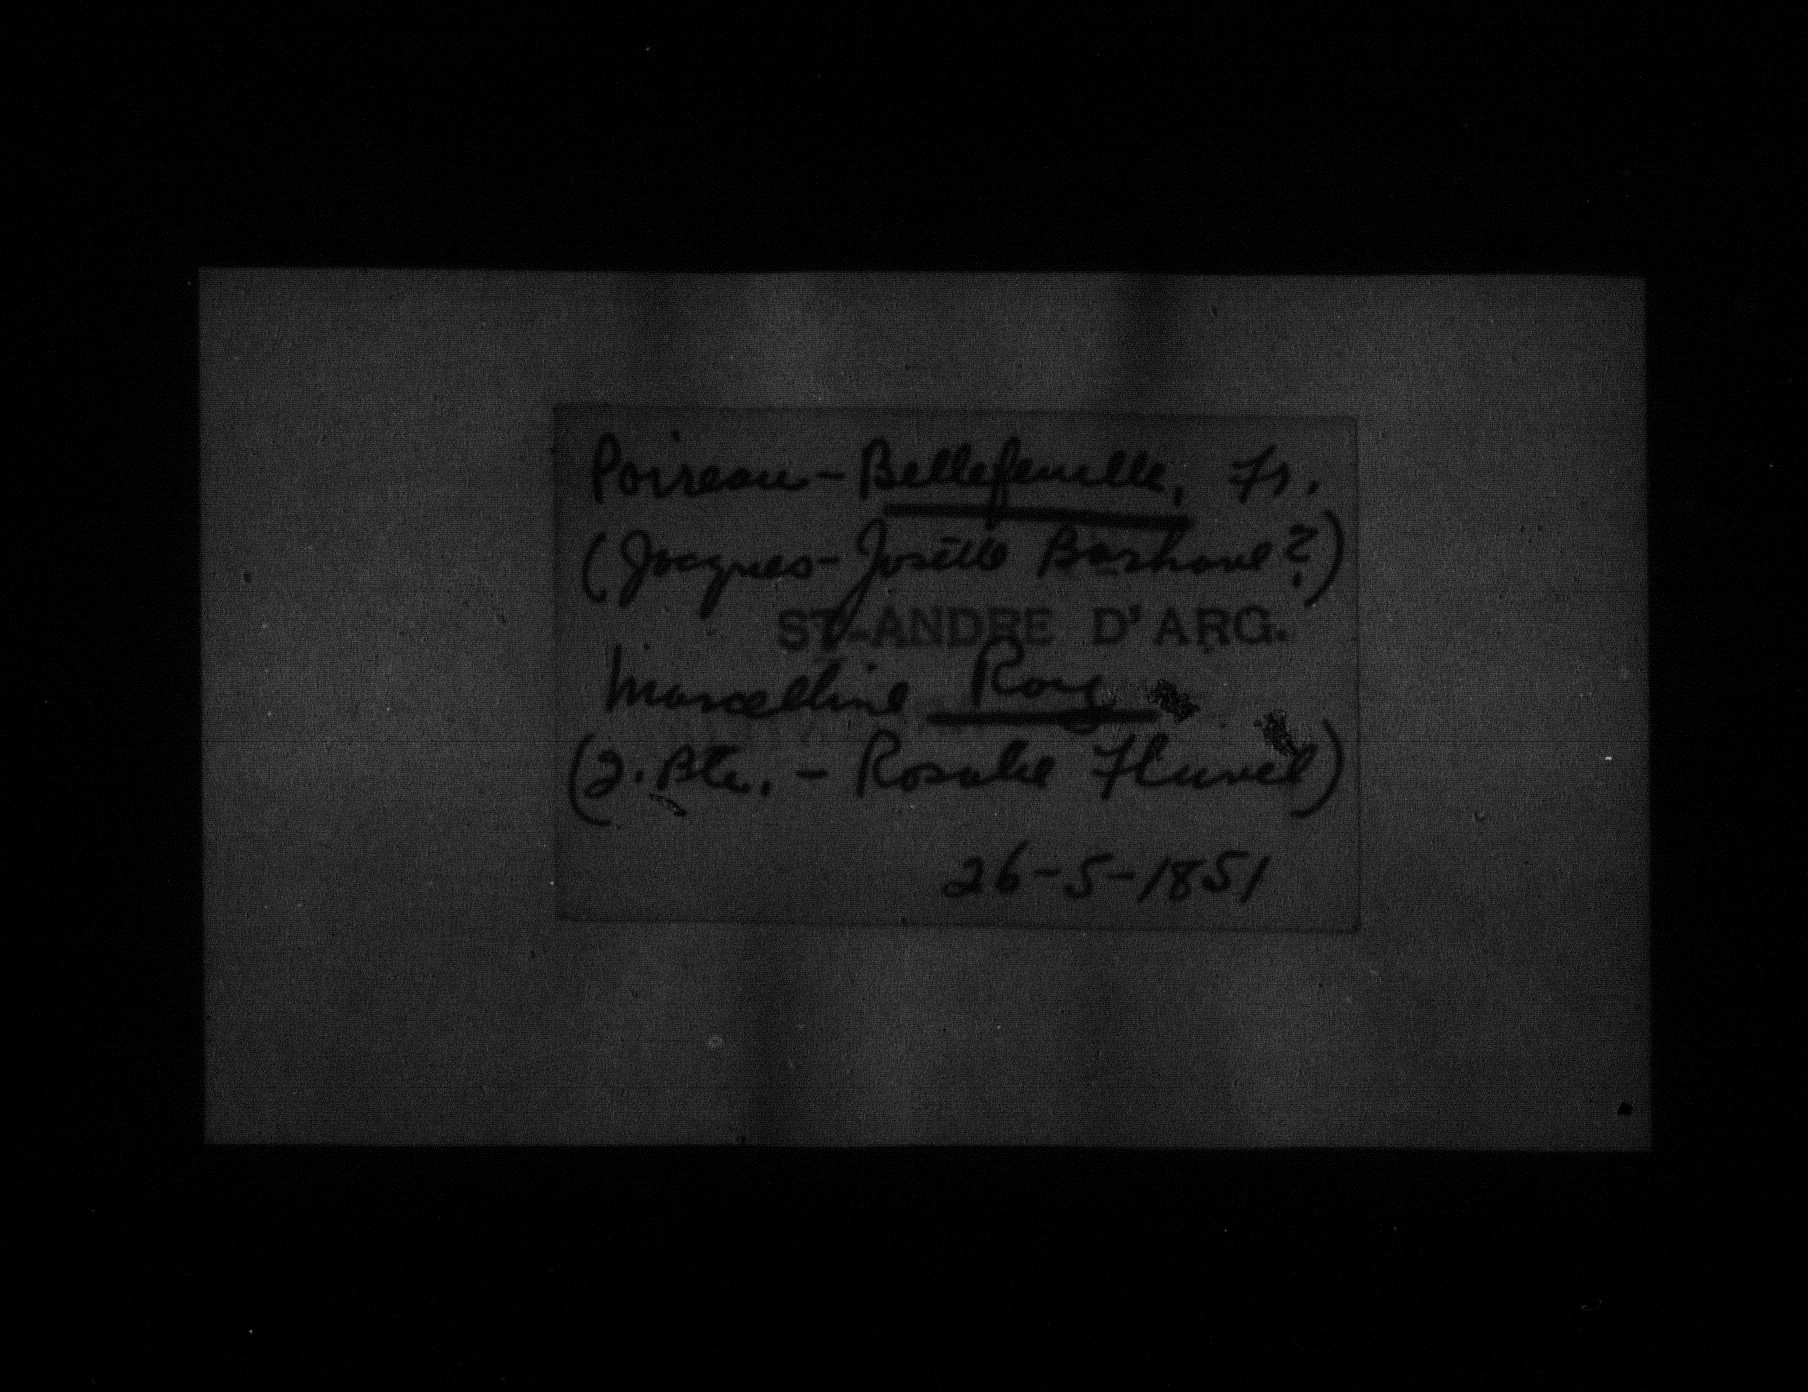 Poireau - Bellefeuille, Fr.
(Jacques - Josette Bashane?)
ST-ANDRE D'ARG.
Marcelline Roy
(J. Bte. - Rosalie Fluvel)
26-5-1851